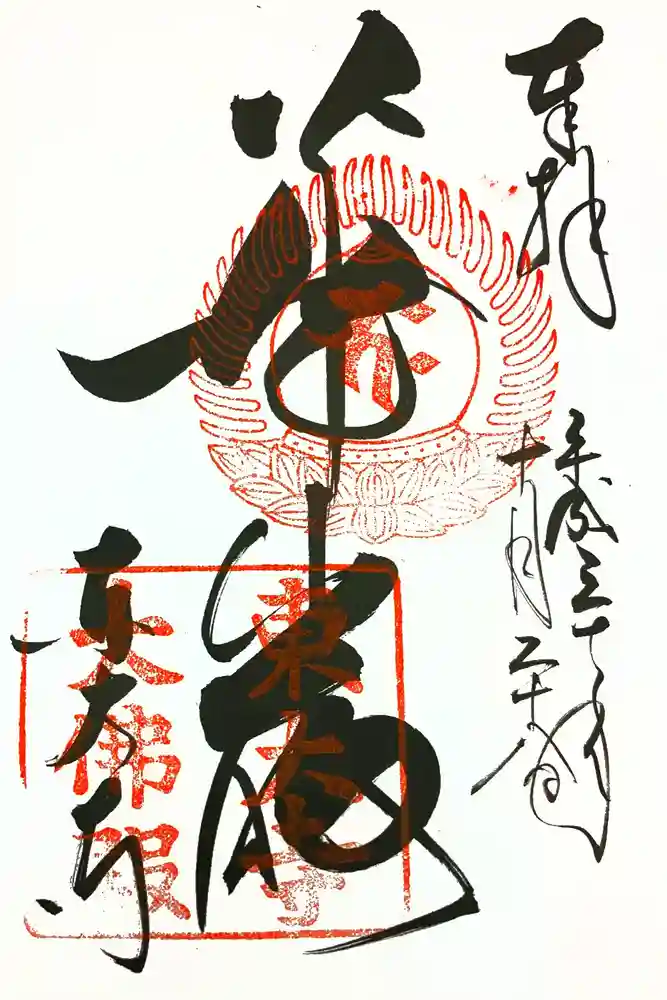 奉拝
平成三十年
十月二十八日
華厳
東大寺
東大寺
大佛殿